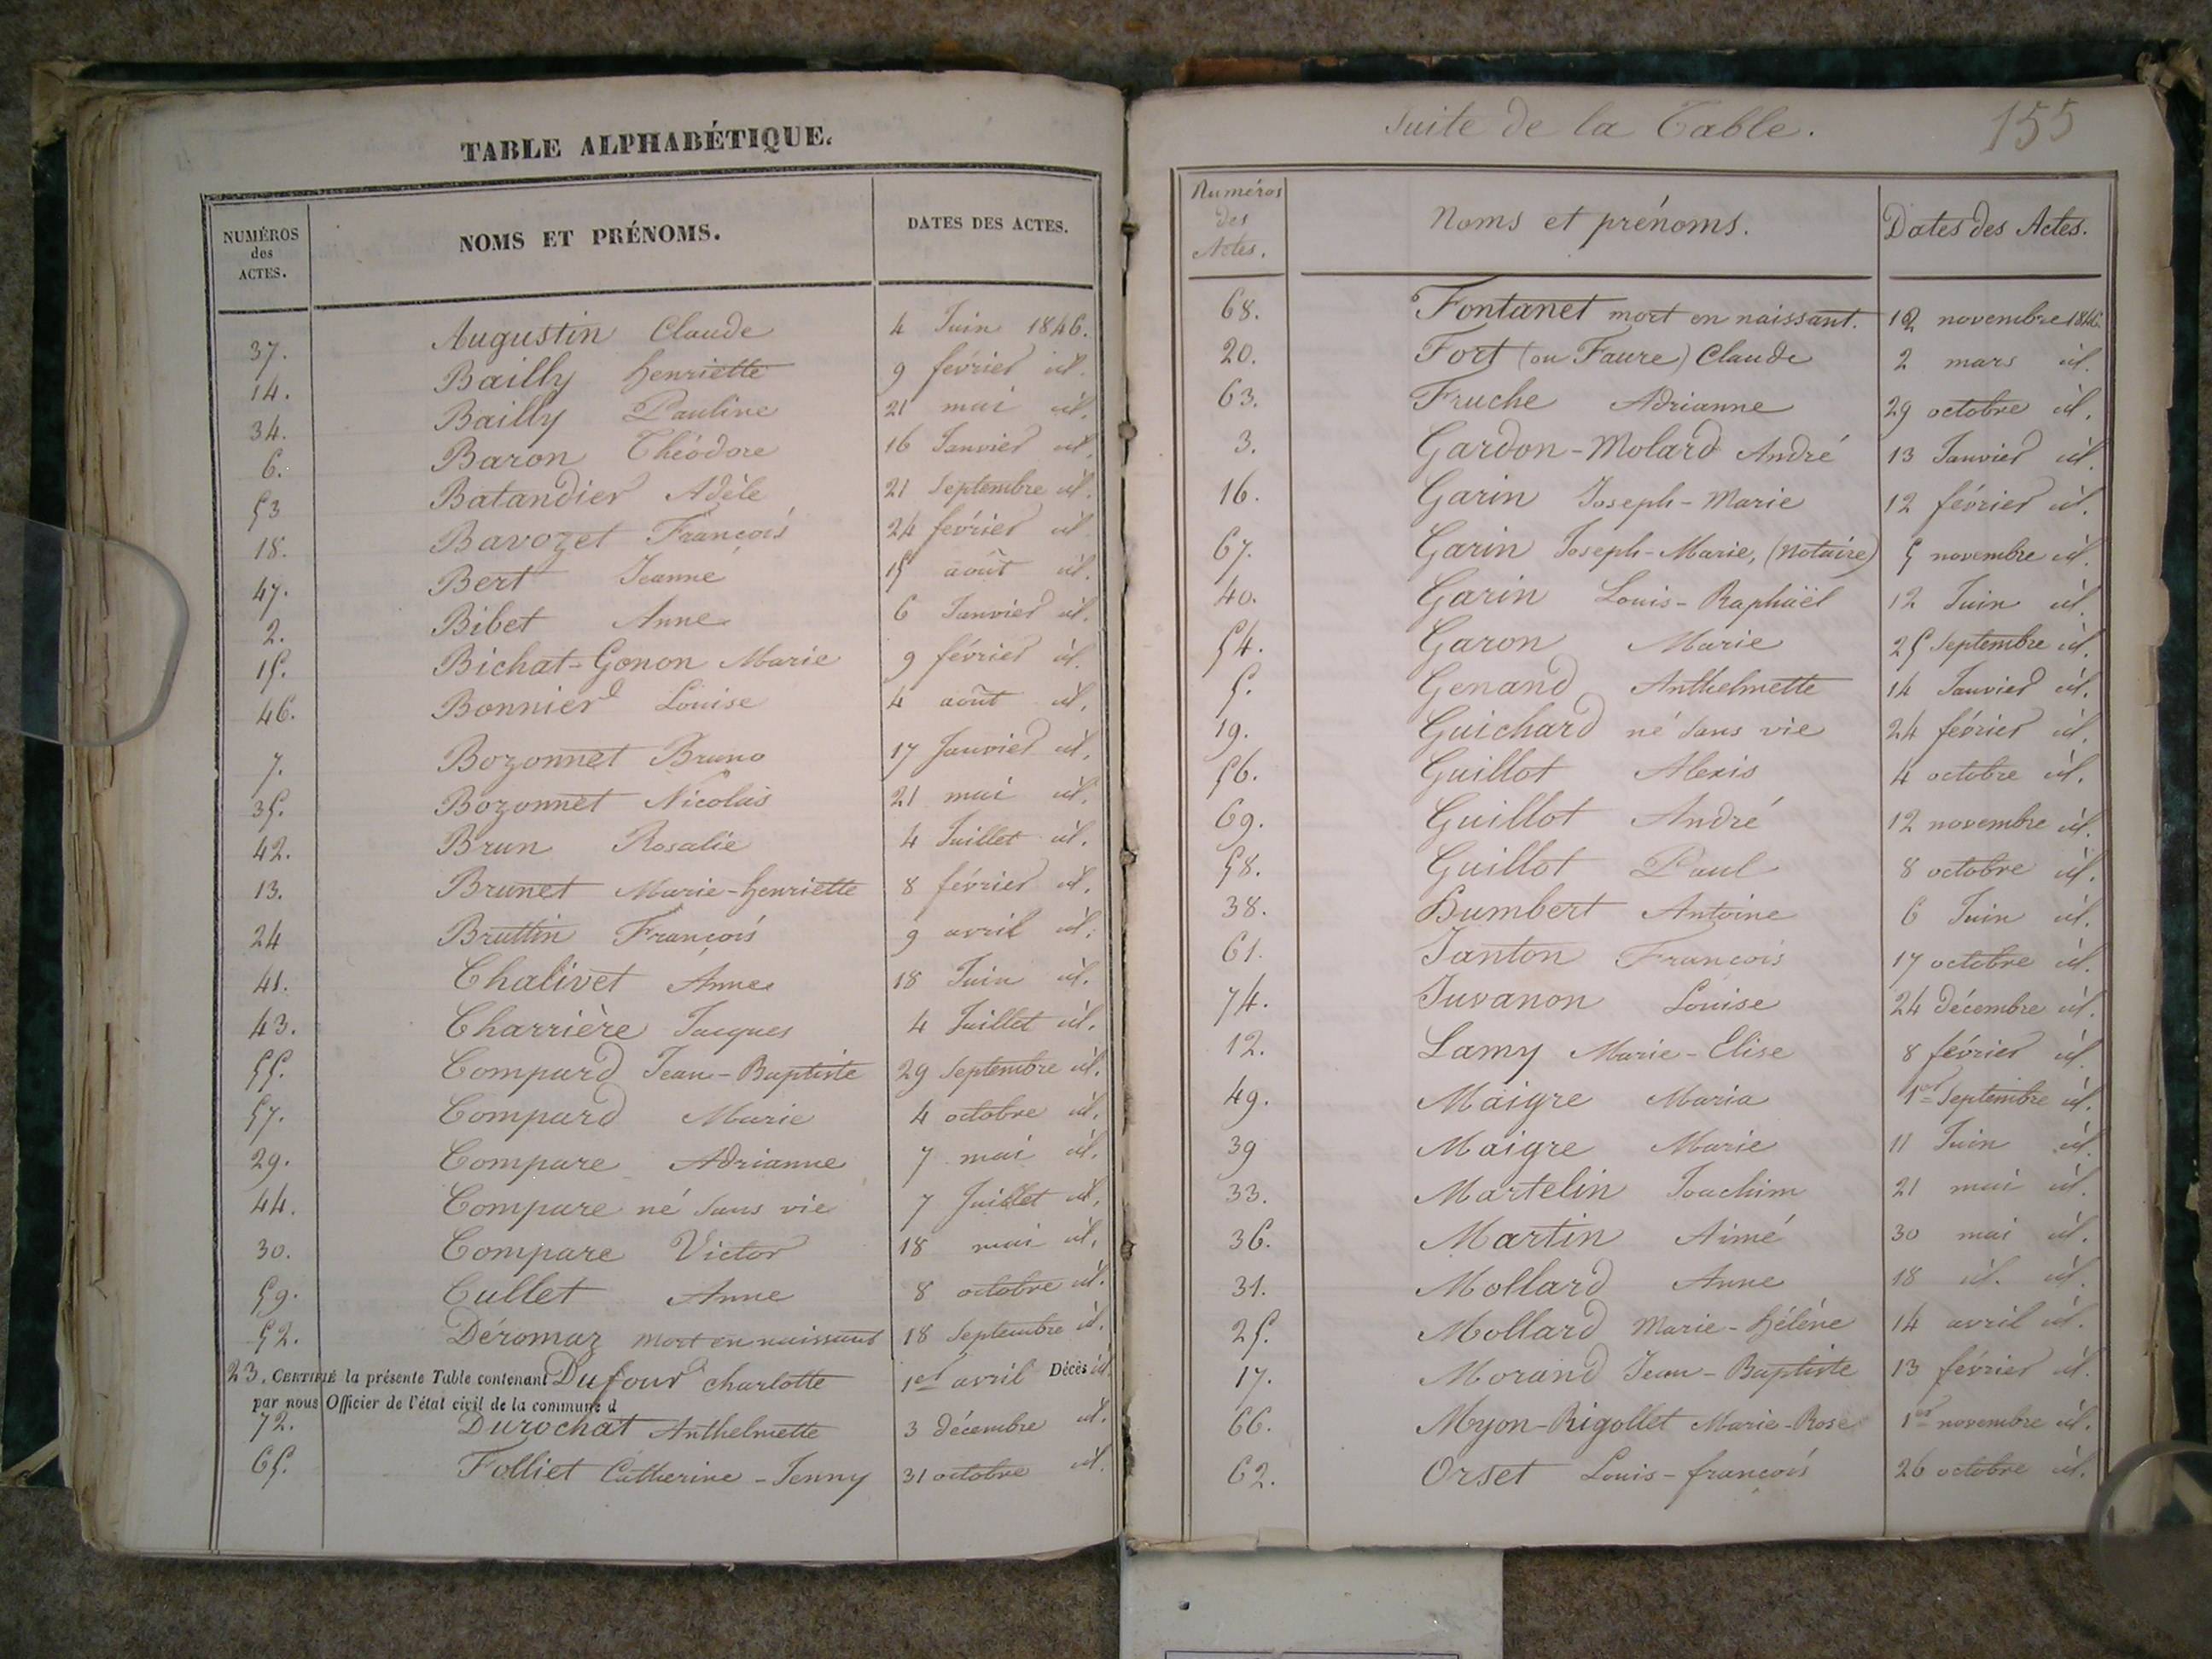 TABLE ALPHABÉTIQUE.
NUMÉROS
des
ACTES.
NOMS ET PRÉNOMS.
DATES DES ACTES.
37. Augustin Claude 4 Juin 1846.
14. Bailly henriette 9 février id.
34. Bailly Pauline 21 mai id.
6. Baron Théodore 16 Janvier id.
53 Batandier Adèle 21 Septembre id.
18. Bavozet François 24 février id
47. Bert Jeanne 15 août id.
2. Bibet Anne 6 Janvier id.
15. Bichat-Gonon Marie 9 février id.
46. Bonnier Louise 4 août id.
7. Bozonnet Bruno 17 Janvier id.
35. Bozonnet Nicolas 21 mai id.
42. Brun Rosalie 4 Juillet id.
13. Brunet Marie-henriette 8 février id.
24 Bruttin François 9 avril id.
41. Chalivet Anne 18 Juin id.
43. Charrière Jacques 4 Juillet id.
55. Compard Jean-Baptiste 29 Septembre id.
57. Compard Marie 4 octobre id.
29. Compare Adrianne 7 mai id.
44. Compare né sans vie 7 Juillet id.
30. Compare Victor 18 mai id.
59. Cullet Anne 8 octobre id.
52. Déromaz mort en naissant 18 Septembre id.
23. CERTIFIÉ la présente Table contenant Dufour charlotte 1er avril Décès id.
par nous Officier de l'état civil de la commune d
72. Durochat Anthelmette 3 décembre id.
65. Folliet Catherine-Jenny 31 octobre id.
Suite de la Table.
155
Numéros
des
Actes.
Noms et prénoms.
Dates des Actes.
68. Fontanet mort en naissant. 12 novembre 1846.
20. Fort (ou Faure) Claude 2 mars id.
63. Fruche Adrianne 29 octobre id.
3. Gardon-Molard André 13 Janvier id.
16. Garin Joseph-Marie 12 février id.
67. Garin Joseph-Marie, (notaire) 5 novembre id.
40. Garin Louis-Raphaël 12 Juin id.
54. Garon Marie 25 Septembre id.
5. Genand Anthelmette 14 Janvier id.
19. Guichard né sans vie 24 février id.
56. Guillot Alexis 4 octobre id.
69. Guillot André 12 novembre id.
58. Guillot Paul 8 octobre id.
38. Humbert Antoine 6 Juin id.
61. Janton François 17 octobre id.
74. Juvanon Louise 24 décembre id.
12. Lamy Marie-Elise 8 février id.
49. Maigre Maria 1er Septembre id.
39 Maigre Marie 11 Juin id.
33. Martelin Joachim 21 mai id.
36. Martin Aimé 30 mai id.
31. Mollard Anne 18 id. id.
25. Mollard Marie-hélène 14 avril id.
17. Morand Jean-Baptiste 13 février id.
66. Myon-Rigollet Marie-Rose 1er novembre id.
62. Orset Louis-françois 26 octobre id.